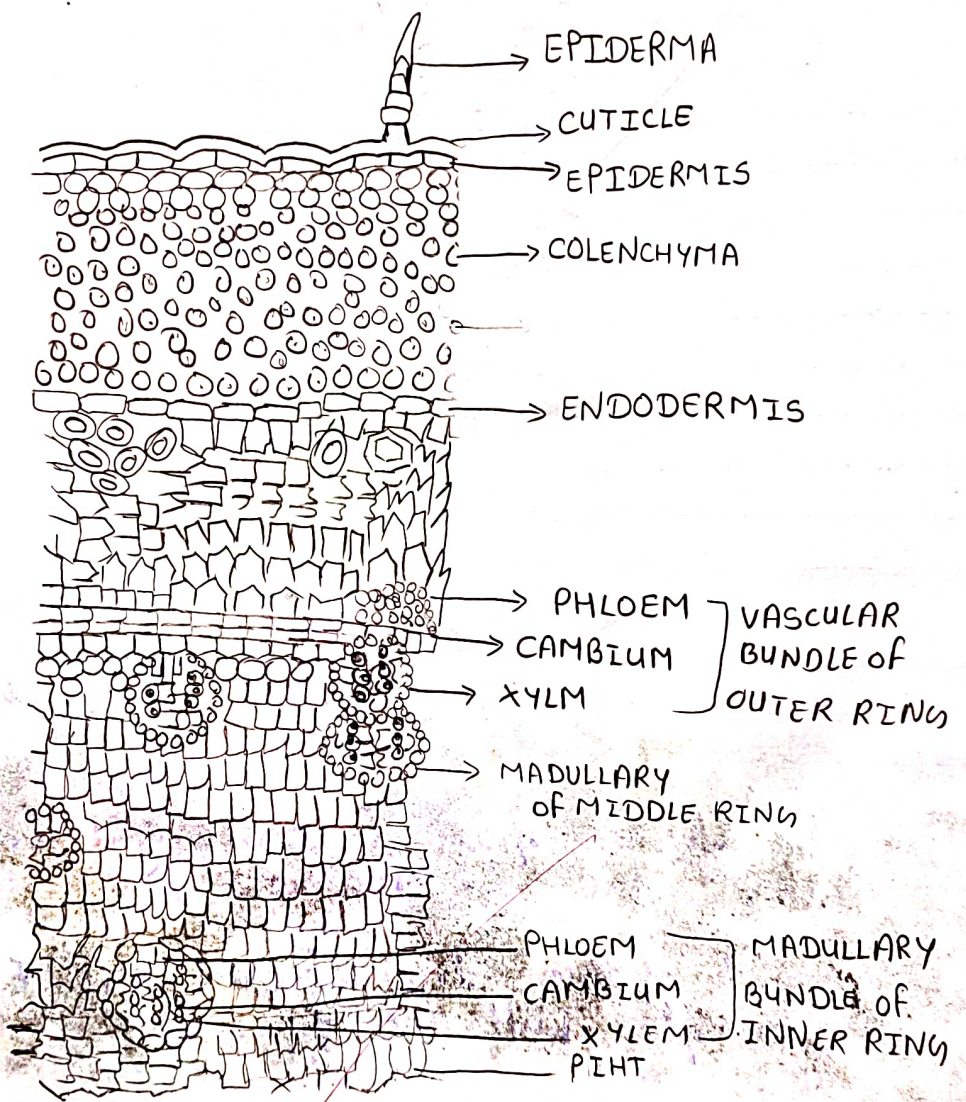 EPIDERMA
CUTICLE
EPIDERMIS
COLENCHYMA
ENDODERMIS
PHLOEM
CAMBIUM
XYLM
VASCULAR
BUNDLE of
OUTER RING
MADULLARY
of MIDDLE RING
PHLOEM
CAMBIUM
XYLEM
MADULLARY
BUNDLE of
INNER RING
PIHT